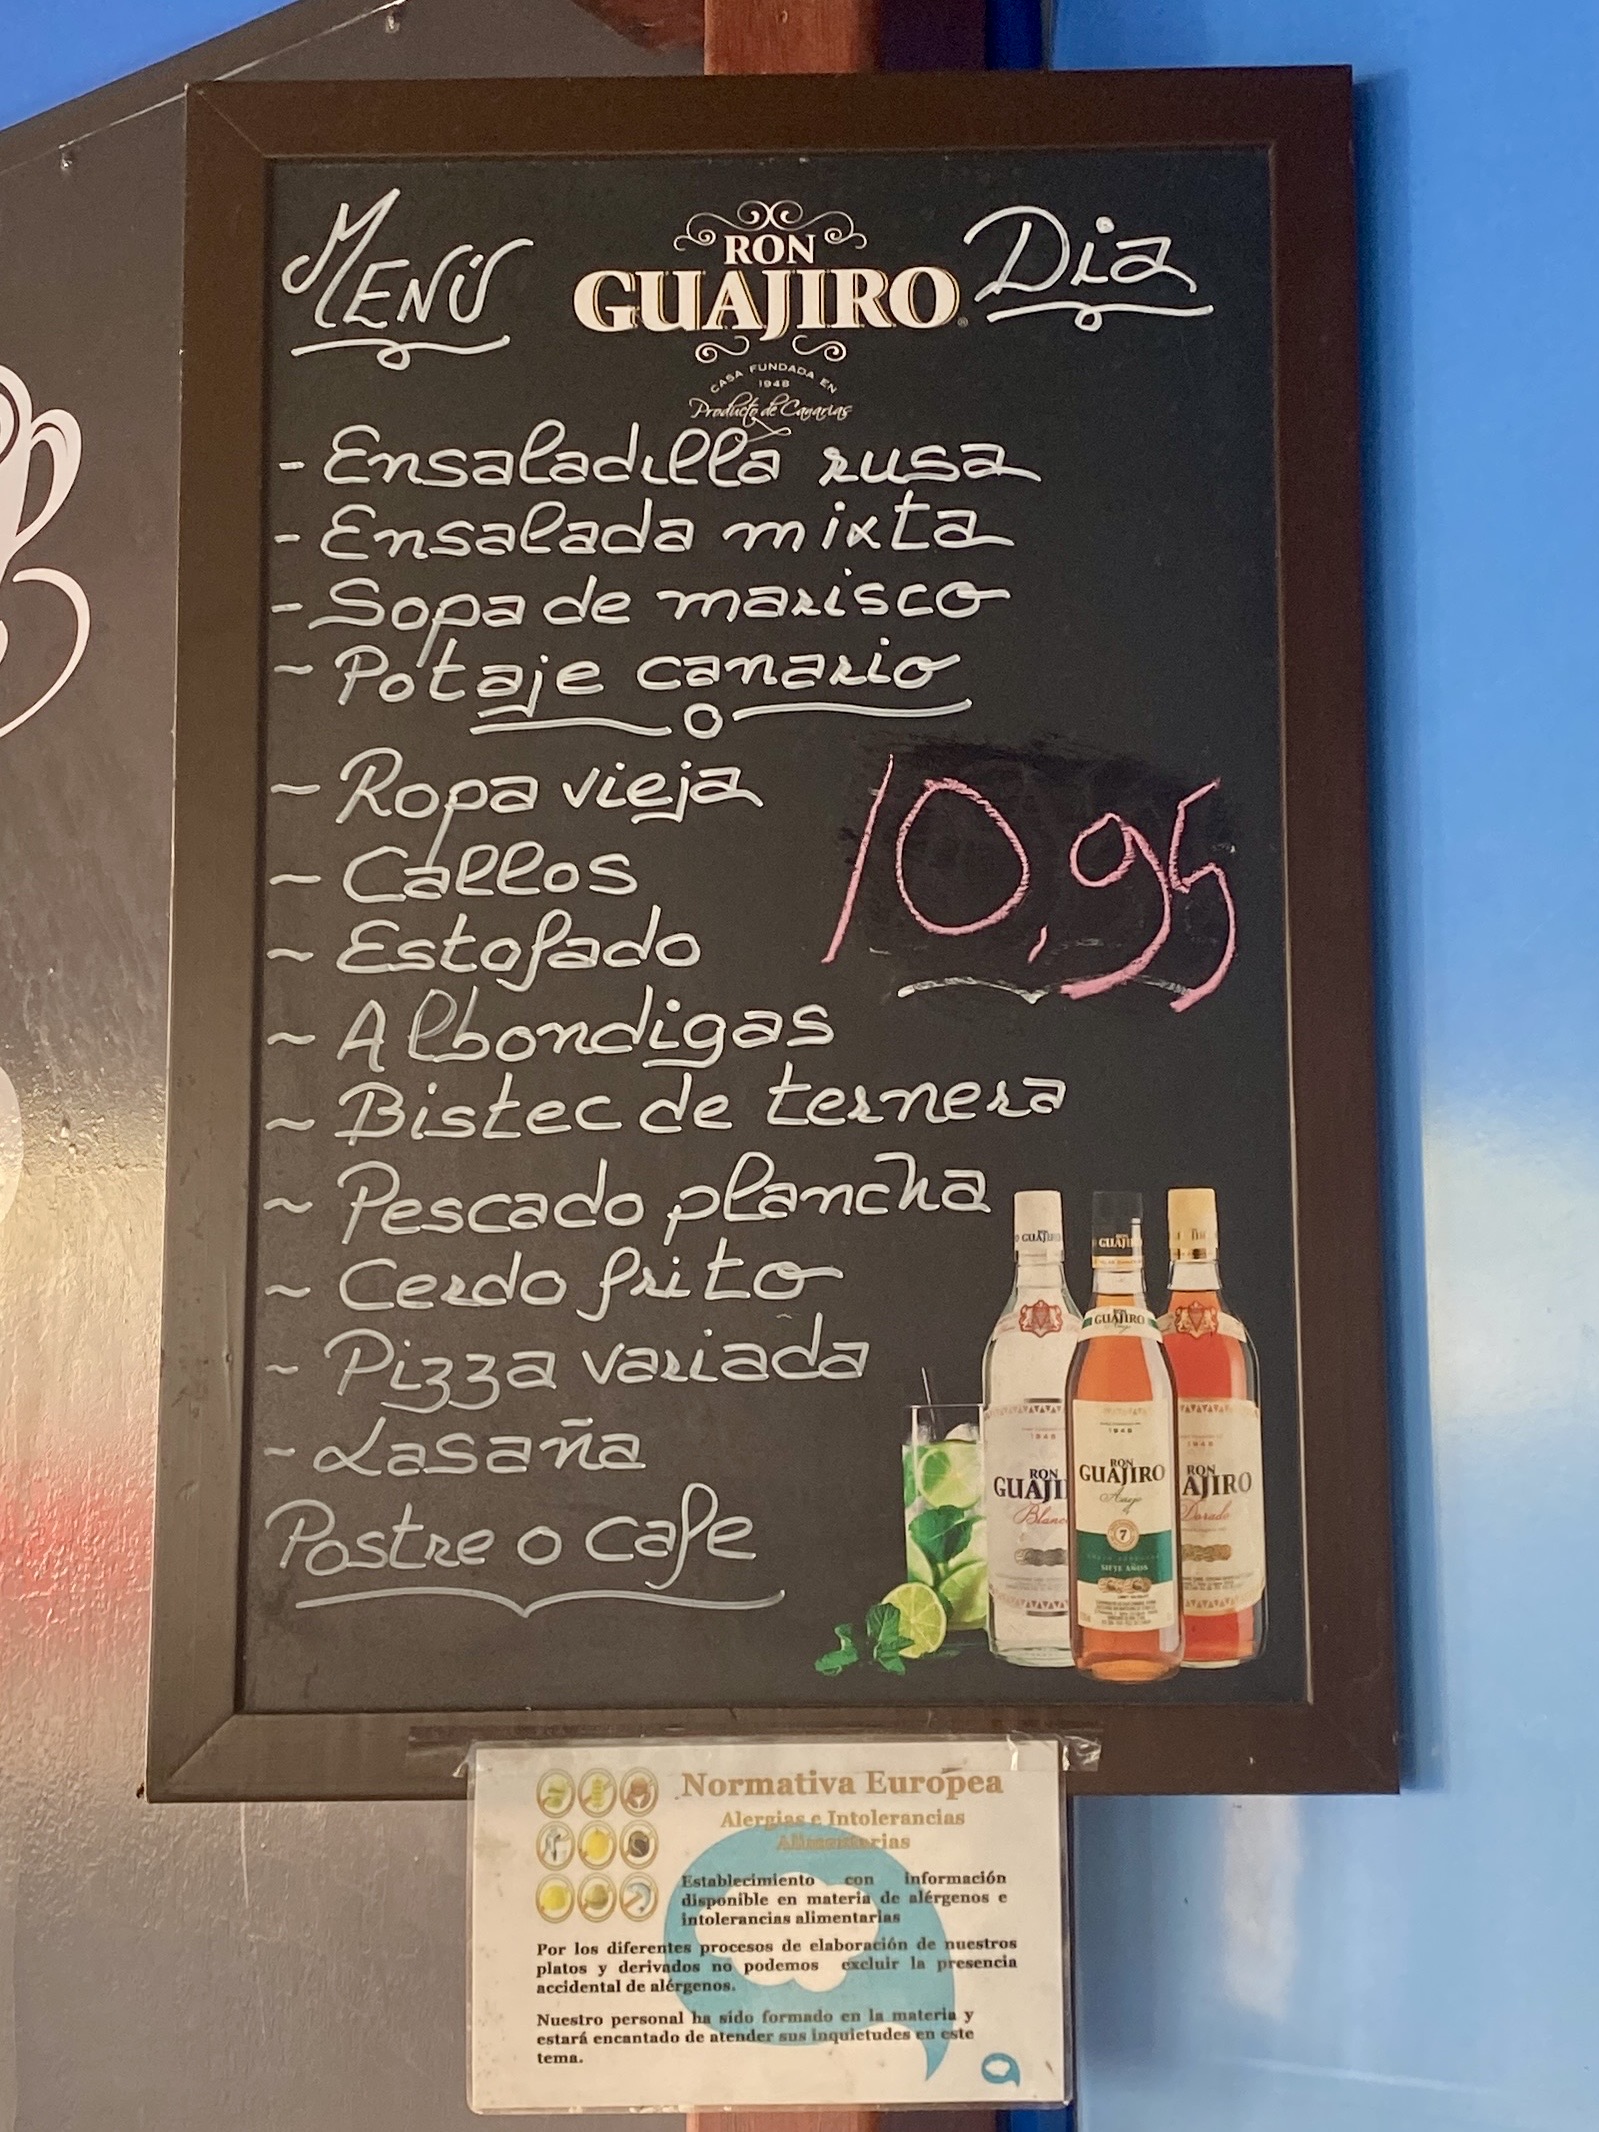 MENÚ
RON
GUAJIRO
Dia
CASA FUNDADA EN
1948
Producto de Canarias
- Ensaladilla rusa
- Ensalada mixta
- Sopa de marisco
~ Potaje canario
~ Ropa vieja
10,95
~ Callos
~ Estofado
~ Albondigas
~ Bistec de ternera
~ Pescado plancha
~ Cerdo frito
~ Pizza variada
- Lasaña
Postre o cafe
GUAJIRO
GUAJIRO
Añejo
1948
1948
1948
RON
GUAJI
Blanco
RON
GUAJIRO
Añejo
7
SIETE AÑOS
RON
AJIRO
Dorado
Normativa Europea
Alergias e Intolerancias
Alimentarias
Establecimiento con información
disponible en materia de alérgenos e
intolerancias alimentarias
Por los diferentes procesos de elaboración de nuestros
platos y derivados no podemos excluir la presencia
accidental de alérgenos.
Nuestro personal ha sido formado en la materia y
estará encantado de atender sus inquietudes en este
tema.